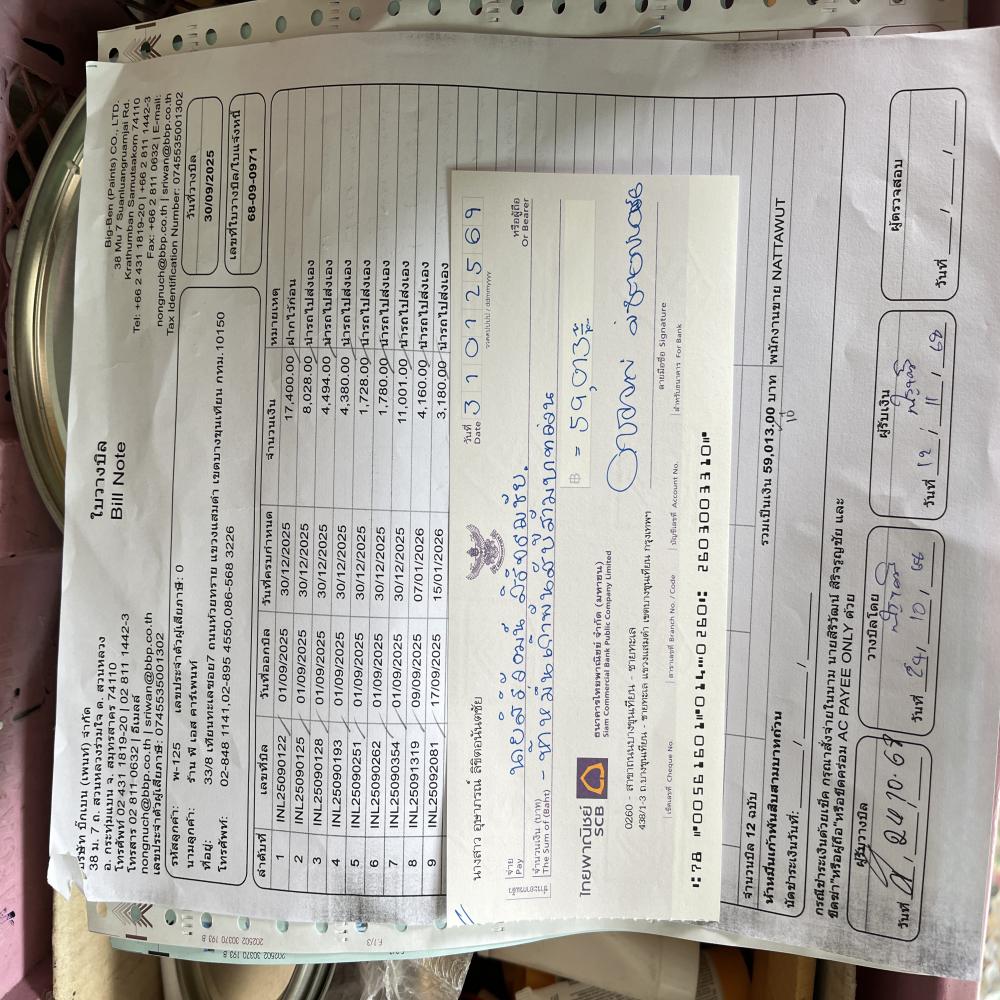 บริษัท บิกเบน (เพนท์) จำกัด
38 ม. 7 ถ. สวนหลวงร่วมใจ ต. สวนหลวง
อ. กระทุ่มแบน จ. สมุทรสาคร 74110
โทรศัพท์ 02 431 1819-20 | 02 811 1442-3
โทรสาร 02 811-0632 | อีเมลล์
nongnuch@bbp.co.th | sriwan@bbp.co.th
เลขประจำตัวผู้เสียภาษี: 0745535001302
ใบวางบิล
Bill Note
Big-Ben (Paints) CO., LTD.
38 Mu 7 Suanluangruamjai Rd.
Krathumban Samutsakorn 74110
Tel: +66 2 431 1819-20 | +66 2 811 1442-3
Fax: +66 2 811 0632 | E-mail:
nongnuch@bbp.co.th | sriwan@bbp.co.th
Tax Identification Number: 0745535001302
รหัสลูกค้า: พ-125 เลขประจำตัวผู้เสียภาษี: 0
นามลูกค้า: ร้าน พี เอส คาร์เพนท์
ที่อยู่: 33/8 เทียนทะเลซอย7 ถนนห้วยทราย แขวงแสมดำ เขตบางขุนเทียน กทม. 10150
โทรศัพท์: 02-848 1141,02-895 4550,086-568 3226
วันที่วางบิล
30/09/2025
เลขที่ใบวางบิล/ใบแจ้งหนี้
68-09-0971
ลำดับที่ เลขที่บิล วันที่ออกบิล วันที่ครบกำหนด จำนวนเงิน หมายเหตุ
1 INL25090122 01/09/2025 30/12/2025 17,400.00 ฝากไว้ก่อน
2 INL25090125 01/09/2025 30/12/2025 8,028.00 นำรถไปส่งเอง
3 INL25090128 01/09/2025 30/12/2025 4,494.00 นำรถไปส่งเอง
4 INL25090193 01/09/2025 30/12/2025 4,380.00 นำรถไปส่งเอง
5 INL25090251 01/09/2025 30/12/2025 1,728.00 นำรถไปส่งเอง
6 INL25090262 01/09/2025 30/12/2025 1,780.00 นำรถไปส่งเอง
7 INL25090354 01/09/2025 30/12/2025 11,001.00 นำรถไปส่งเอง
8 INL25091319 09/09/2025 07/01/2026 4,160.00 นำรถไปส่งเอง
9 INL25092081 17/09/2025 15/01/2026 3,180.00 นำรถไปส่งเอง
นางสาว อุษาภรณ์ ลิขิตอนันตชัย
วันที่ 31012569
Date ววดดปปปป / ddmmyyyy
จ่าย
Pay
หรือผู้ถือ
Or Bearer
จำนวนเงิน (บาท) - ห้าหมื่นเก้าพันสิบสามบาทถ้วน
The Sum of (Baht)
฿ = 59,013
ไทยพาณิชย์
SCB
ธนาคารไทยพาณิชย์ จำกัด (มหาชน)
Siam Commercial Bank Public Company Limited
0260 - สาขาถนนบางขุนเทียน - ชายทะเล
438/1-3 ถ.บางขุนเทียน - ชายทะเล แขวงแสมดำ เขตบางขุนเทียน กรุงเทพฯ
ลายมือชื่อ Signature
เช็คเลขที่ Cheque No. สาขาเลขที่ Branch No. / Code บัญชีเลขที่ Account No. สำหรับธนาคาร For Bank
จำนวนบิล 12 ฉบับ รวมเป็นเงิน 59,013.00 บาท พนักงานขาย NATTAWUT
ห้าหมื่นเก้าพันสิบสามบาทถ้วน
นัดชำระเงินวันที่: / /
กรณีชำระเงินด้วยเช็ค กรุณาสั่งจ่ายในนาม นายสิริวัฒน์ สิริจรูญชัย และ
ขีดฆ่า"หรือผู้ถือ"หรือขีดคร่อม AC PAYEE ONLY ด้วย
ผู้รับวางบิล
วันที่ 24.10.68
วางบิลโดย
วันที่ 24 / 10 / 68
ผู้รับเงิน
วันที่ 12 / 11 / 68
ผู้ตรวจสอบ
วันที่ / /
202502 30370 193 B
202502 30370 193 B
F.1/3